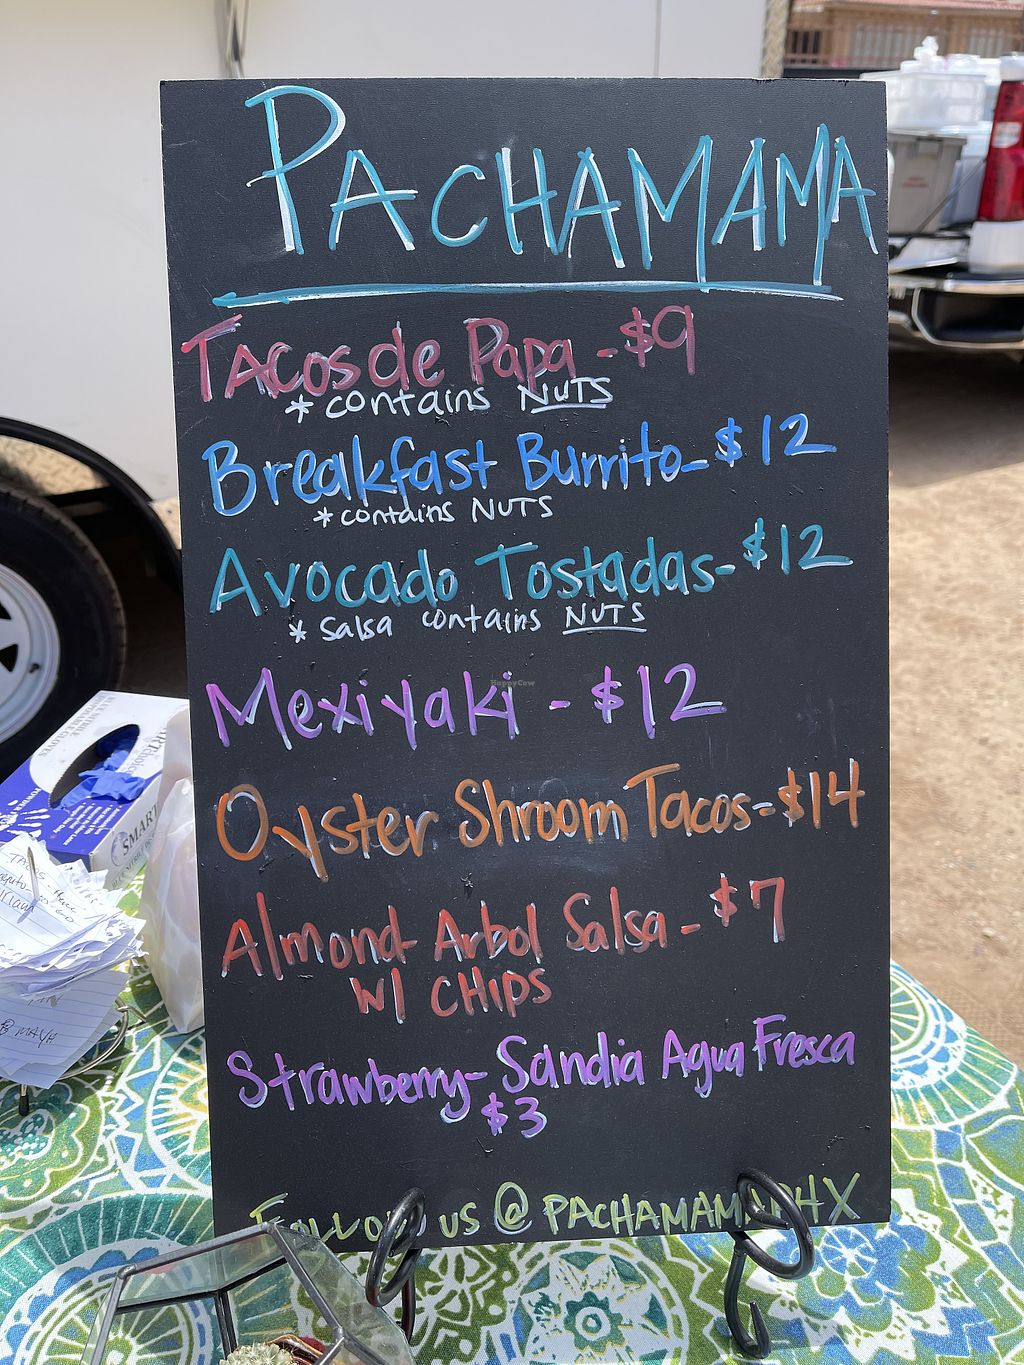 PACHAMAMA
Tacos de Papa - $9
* contains NUTS
Breakfast Burrito - $12
* contains NUTS
Avocado Tostadas - $12
* Salsa contains NUTS
HappyCow
Mexiyaki - $12
Oyster Shroom Tacos - $14
Almond Arbol Salsa - $7
W/ CHIPS
Strawberry - Sandia Agua Fresca
$3
Follow us @ PACHAMAMAPHX
SMART